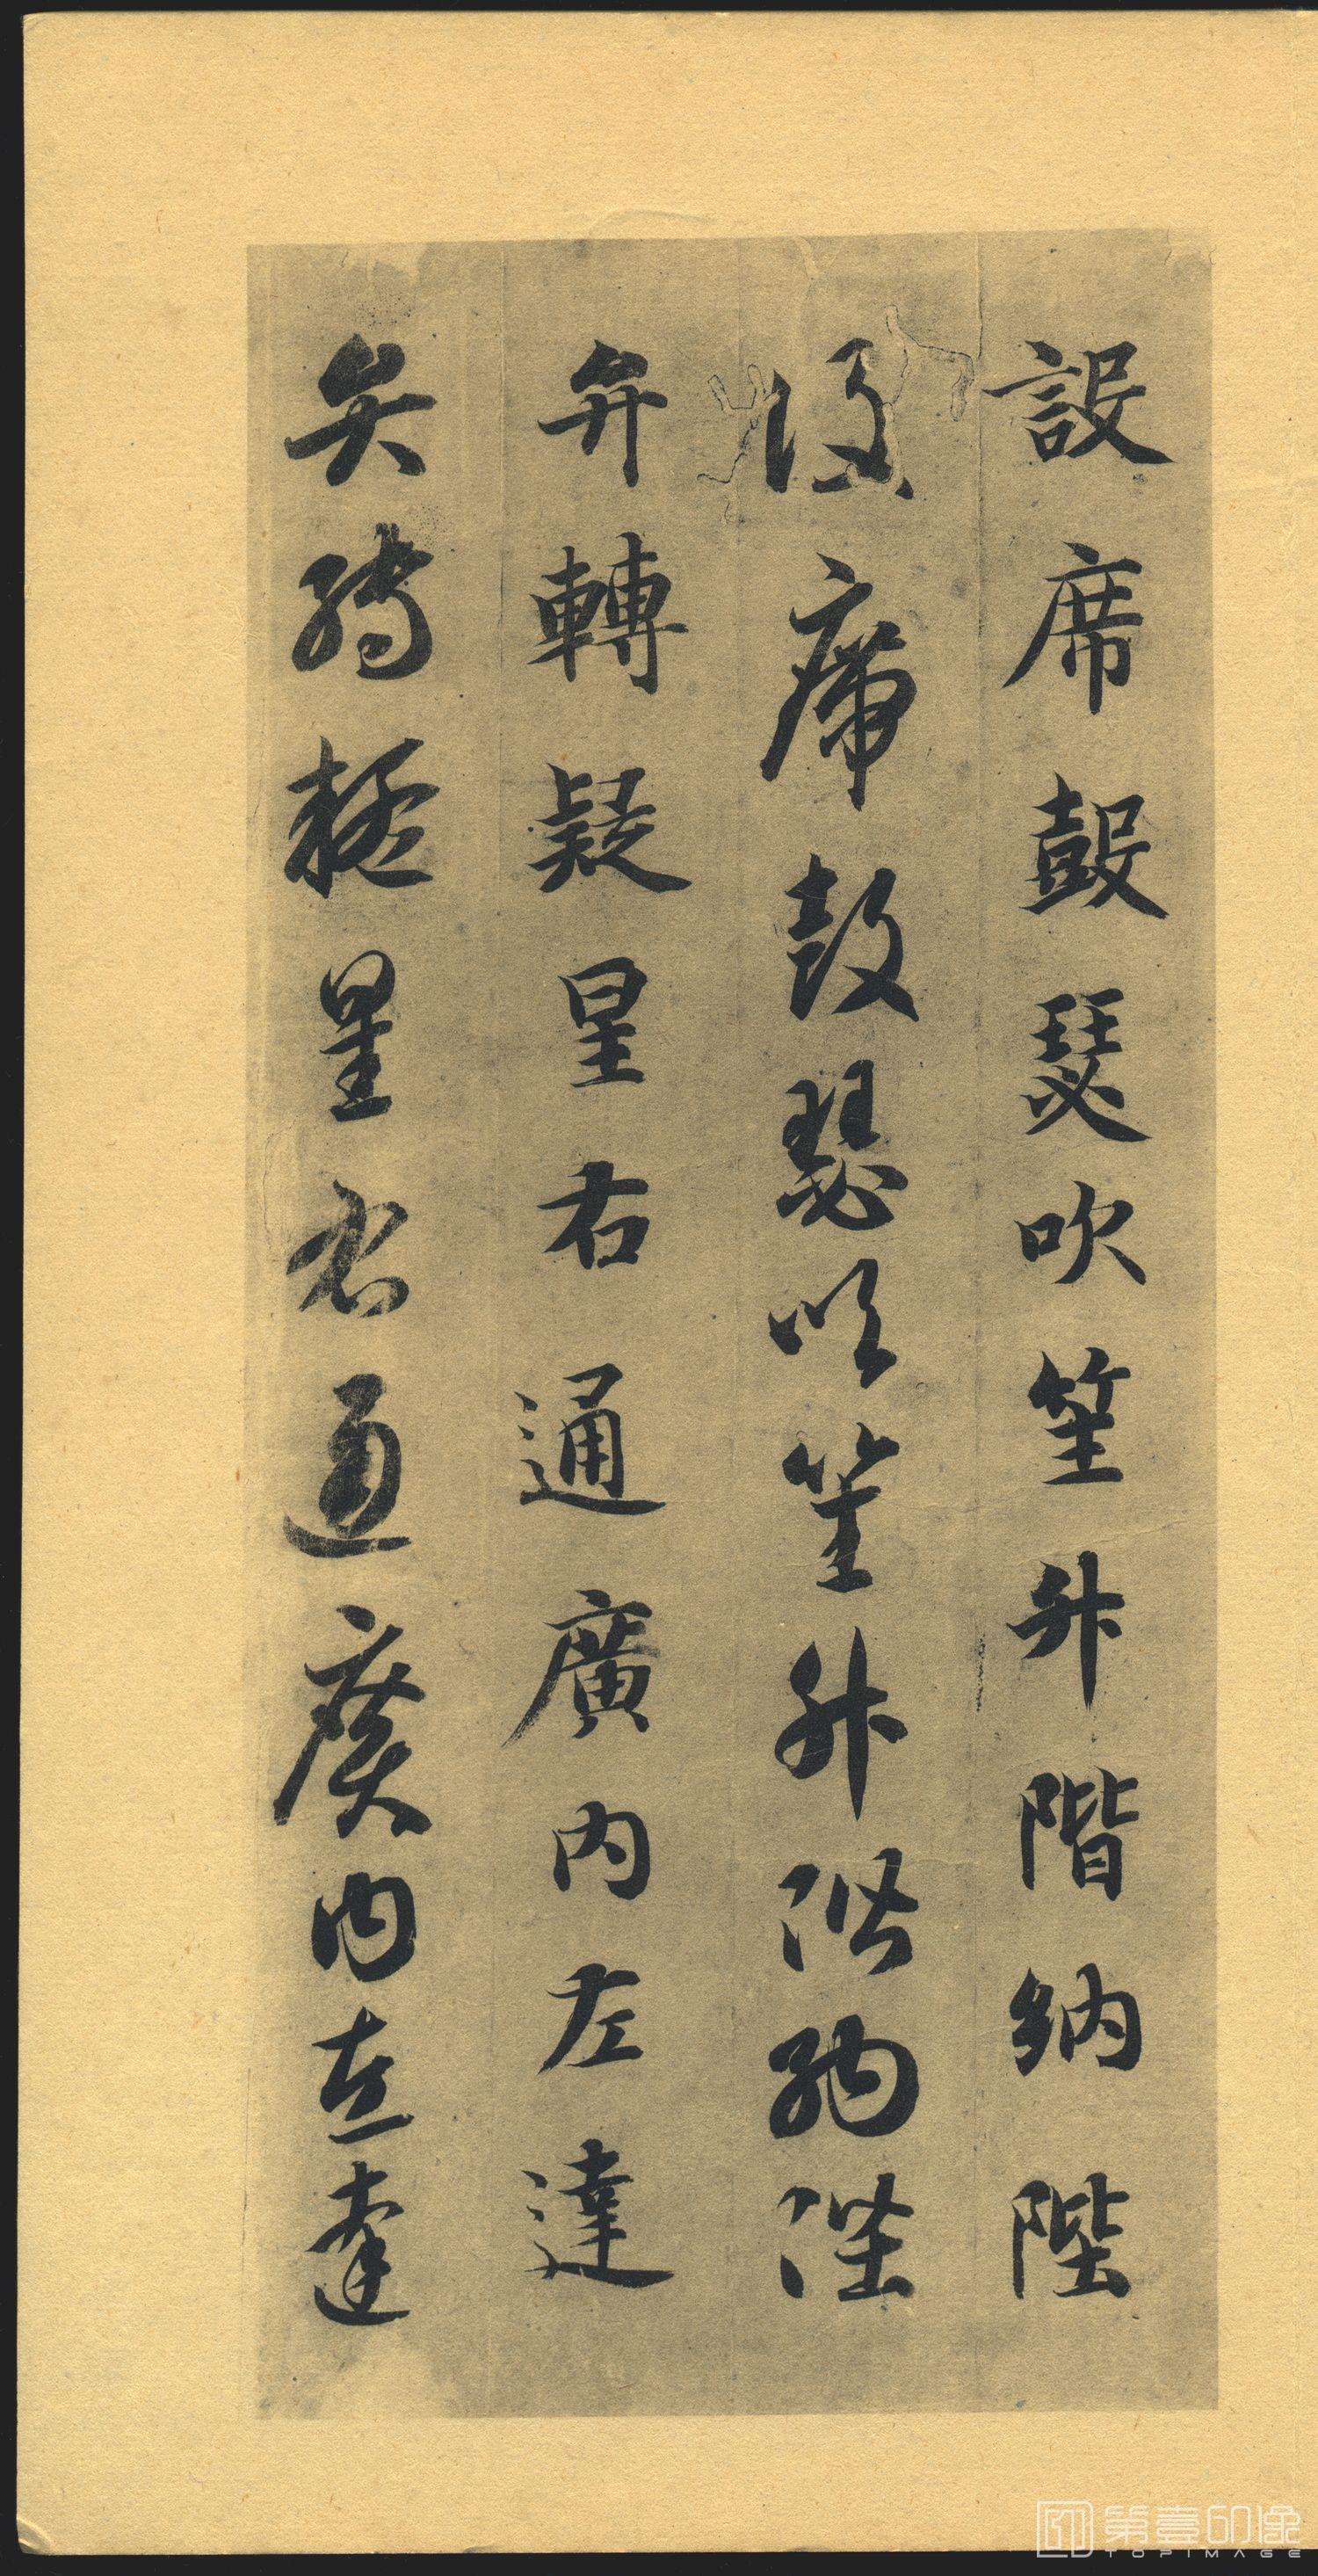 設席鼓瑟吹笙升階納陛
設席鼓瑟吹笙升階納陛
弁轉疑星右通廣內左達
弁轉疑星右通廣內左達
第壹印像
TOPIMAGE